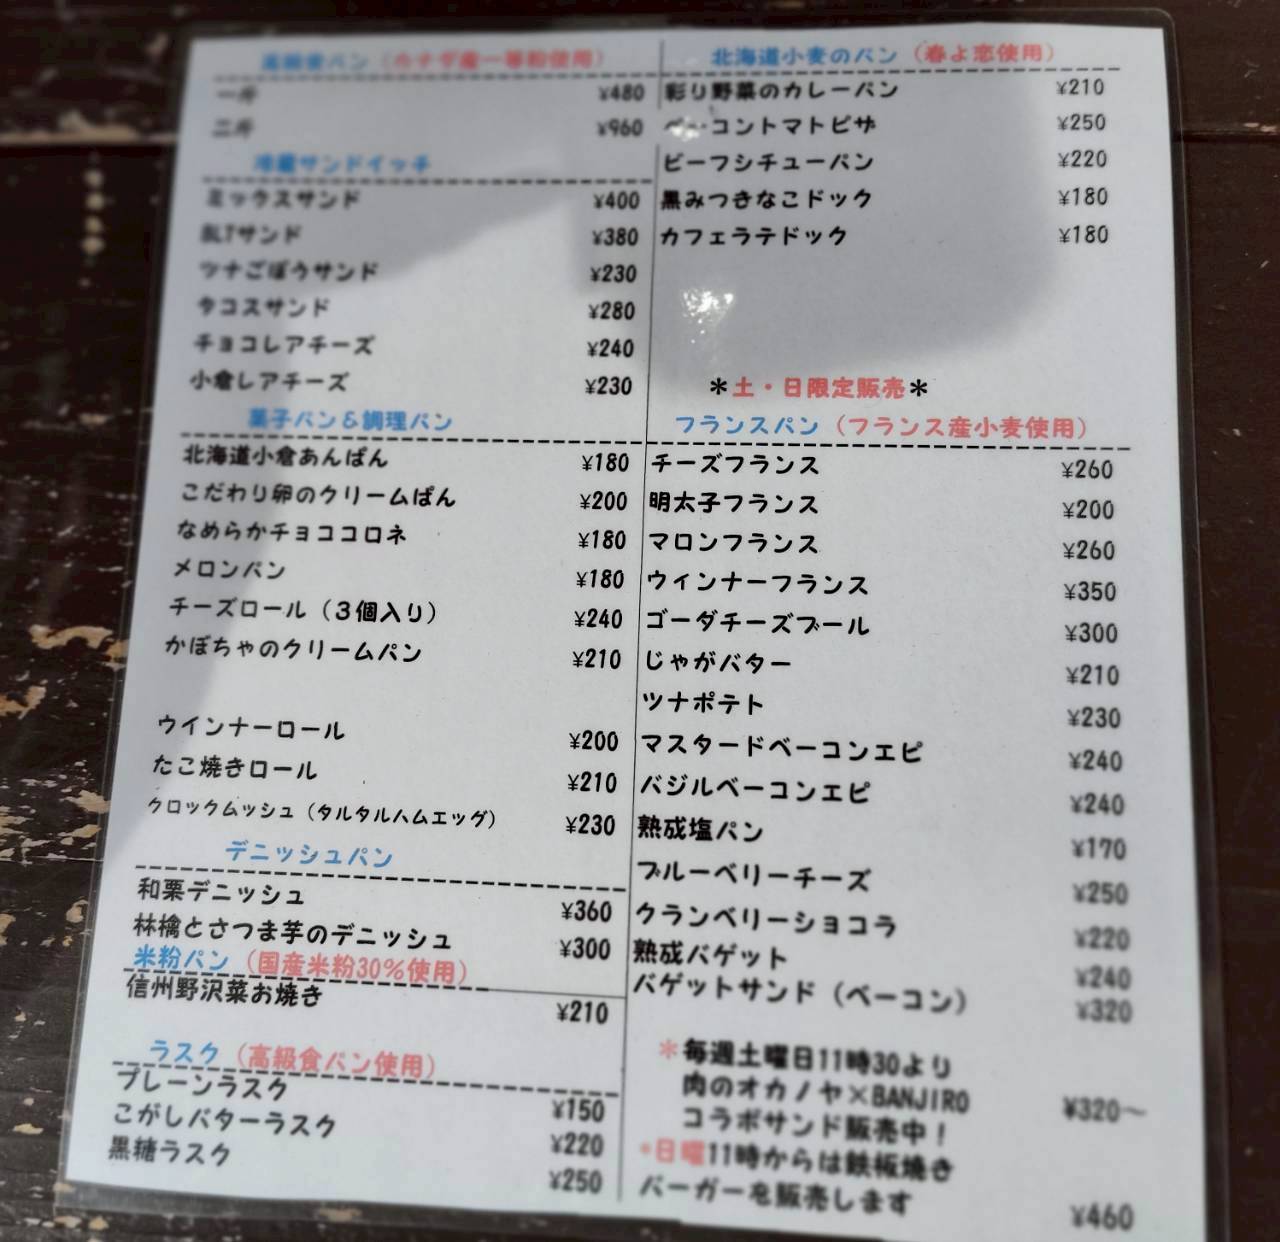 高級食パン（カナダ産一等粉使用）
一斤 ¥480
二斤 ¥960
冷蔵サンドイッチ
ミックスサンド ¥400
BLTサンド ¥380
ツナごぼうサンド ¥230
タコスサンド ¥280
チョコレアチーズ ¥240
小倉レアチーズ ¥230
菓子パン＆調理パン
北海道小倉あんぱん ¥180
こだわり卵のクリームぱん ¥200
なめらかチョココロネ ¥180
メロンパン ¥180
チーズロール（３個入り） ¥240
かぼちゃのクリームパン ¥210
ウインナーロール ¥200
たこ焼きロール ¥210
クロックムッシュ（タルタルハムエッグ） ¥230
デニッシュパン
和栗デニッシュ ¥360
林檎とさつま芋のデニッシュ ¥300
米粉パン（国産米粉30％使用）
信州野沢菜お焼き ¥210
ラスク（高級食パン使用）
プレーンラスク ¥150
こがしバターラスク ¥220
黒糖ラスク ¥250
北海道小麦のパン（春よ恋使用）
彩り野菜のカレーパン ¥210
ベーコントマトピザ ¥250
ビーフシチューパン ¥220
黒みつきなこドック ¥180
カフェラテドック ¥180
＊土・日限定販売＊
フランスパン（フランス産小麦使用）
チーズフランス ¥260
明太子フランス ¥200
マロンフランス ¥260
ウインナーフランス ¥350
ゴーダチーズブール ¥300
じゃがバター ¥210
ツナポテト ¥230
マスタードベーコンエピ ¥240
バジルベーコンエピ ¥240
熟成塩パン ¥170
ブルーベリーチーズ ¥250
クランベリーショコラ ¥220
熟成バゲット ¥240
バゲットサンド（ベーコン） ¥320
＊毎週土曜日11時30より
肉のオカノヤ×BANJIRO ¥320～
コラボサンド販売中！
＊日曜11時からは鉄板焼き
バーガーを販売します ¥460